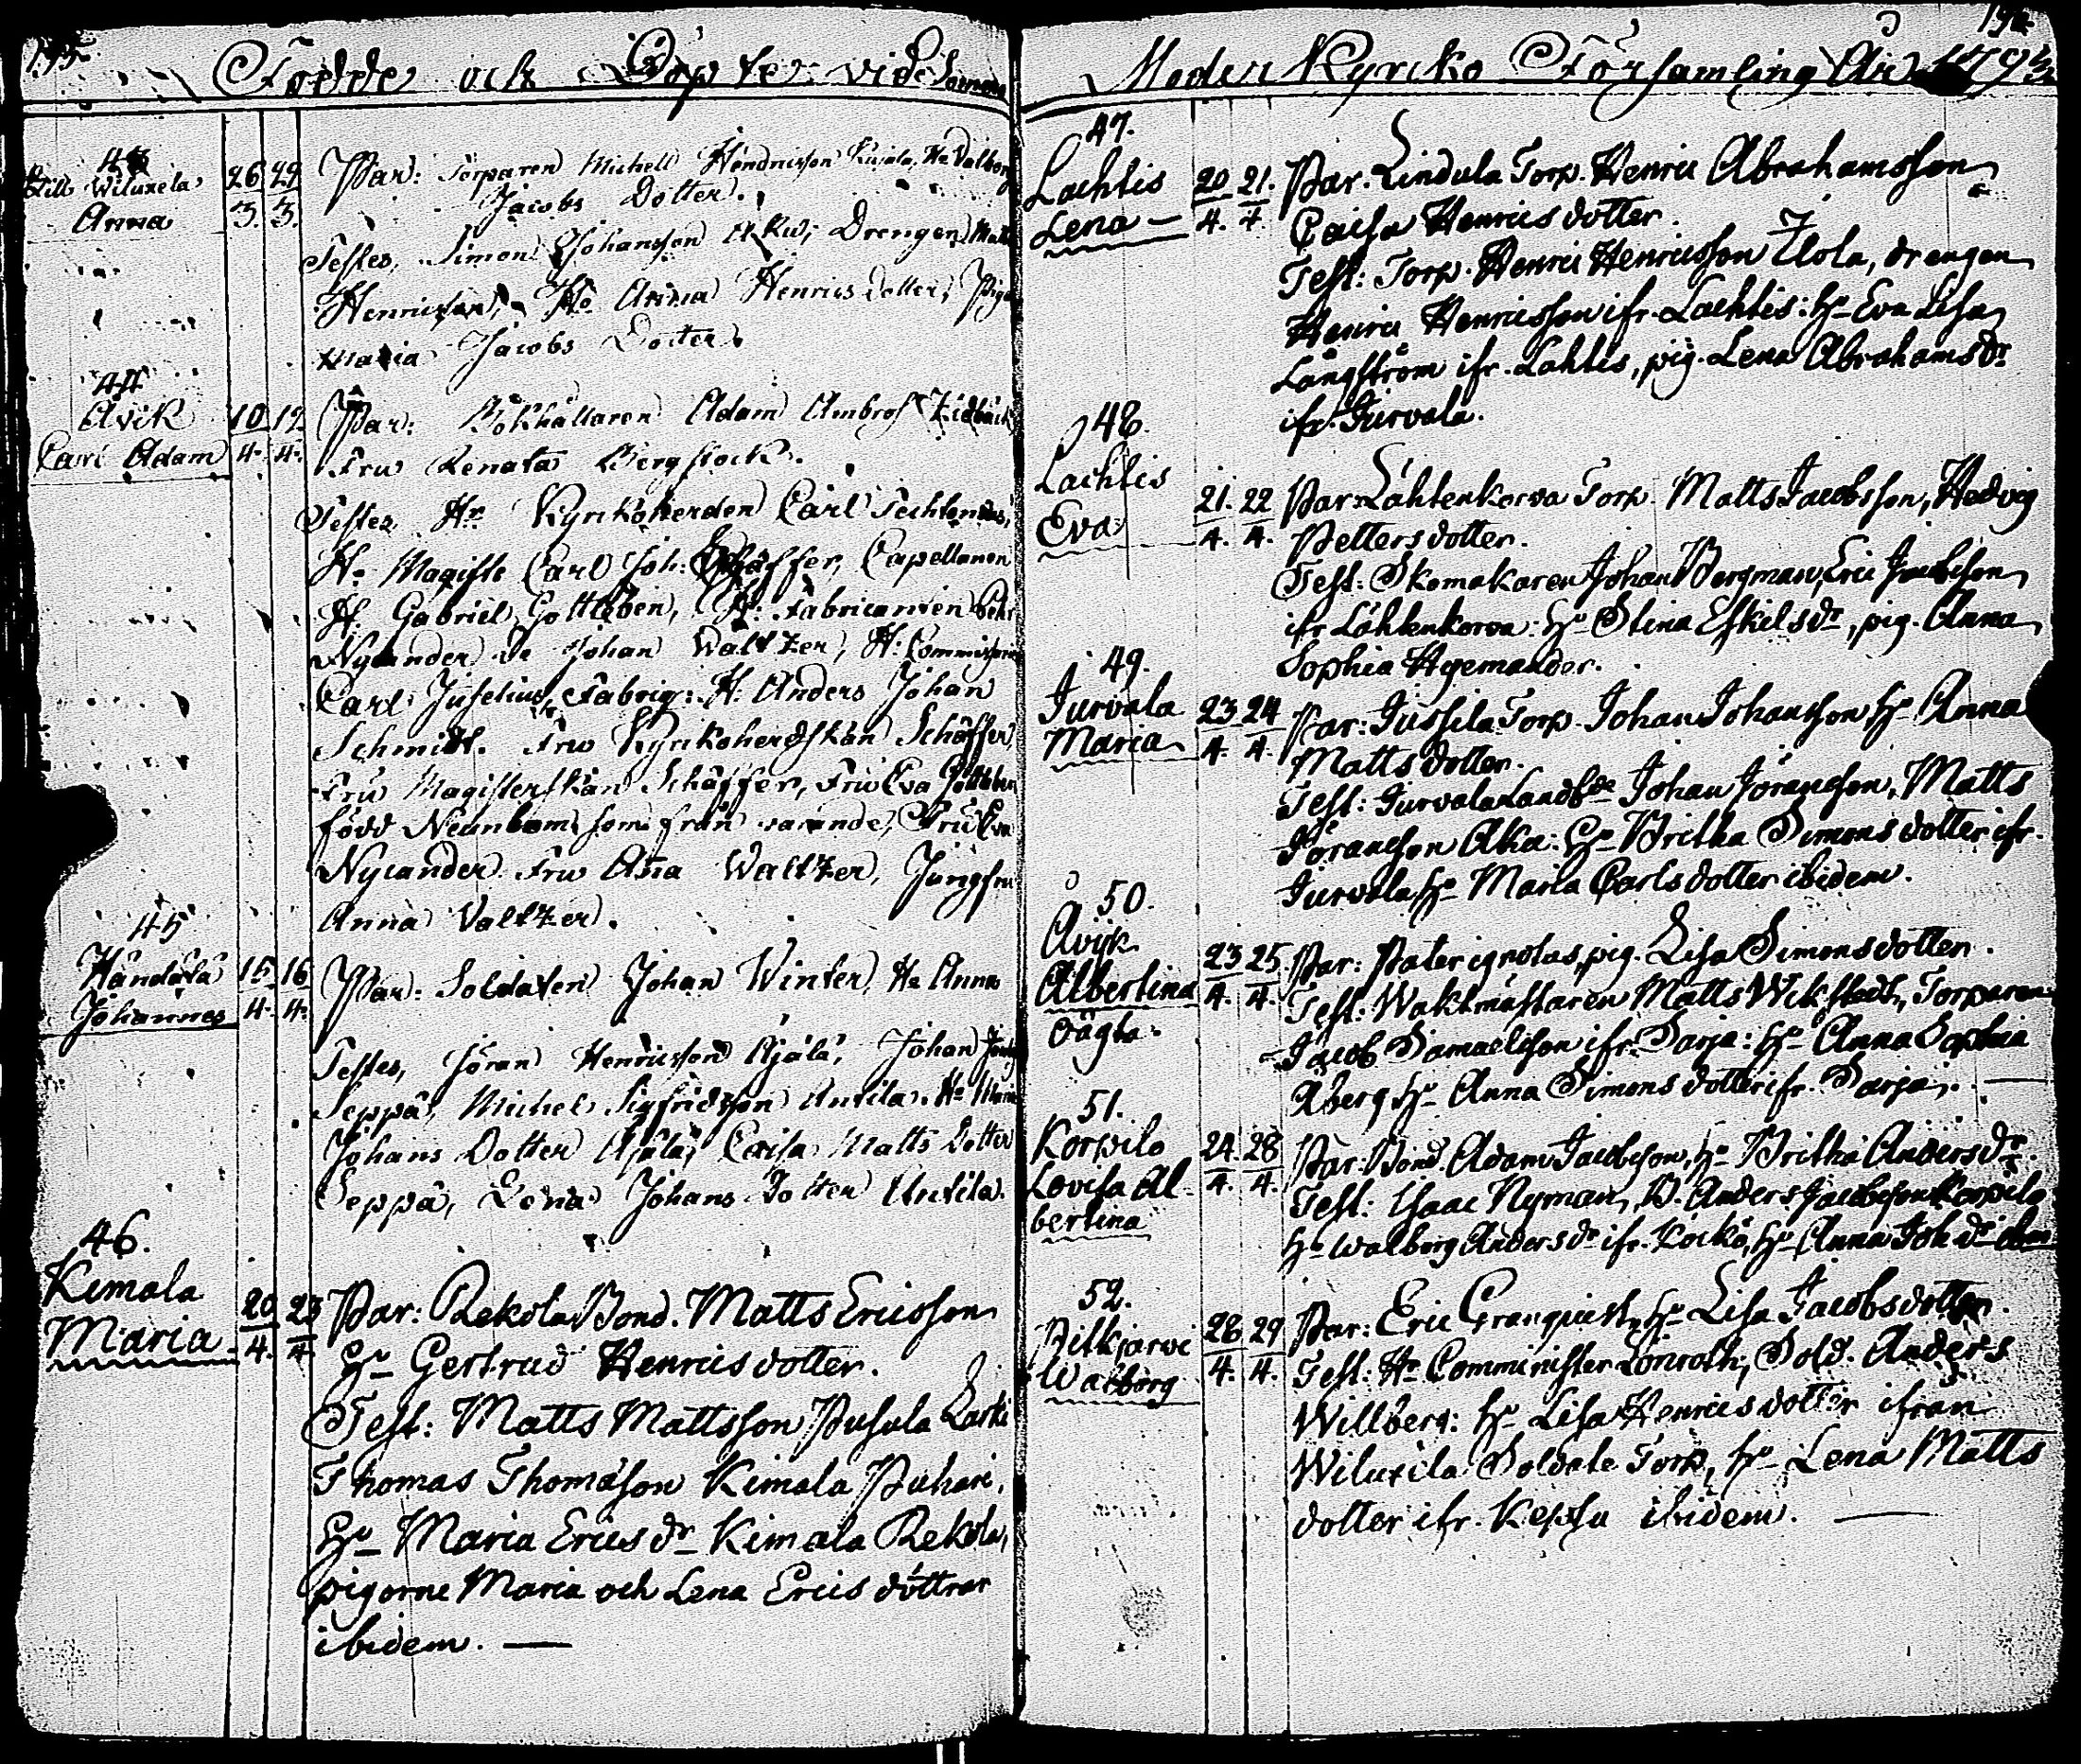 195
Födde och Döpte vid Somero
43
Lill Wiluxela 26 29
Anna 3. 3.
Par: Torparen Michell Hendricsson Hu Valborg
Jacobs Dotter.
Testes, Simon Johansson Drengen Matts
Henricsson, Hu Anna Henrics dotter, Piga
Maria Jacobs Dotter.
44
Avik 10 12
Carl Adam 4. 4.
Par: Bokhållaren Adam Ambros
Fru Renata Bergstock.
Testes Hr Kyrkoherden Carl
H. Magist. Carl Joh: Schäffer, Capellanen
H. Gabriel Gottleben, H: Fabricanten Pehr
Nylander Johan Waltzer, H: Commissarien
Carl Juselius, Fabriq: H: Anders Johan
Schmidt. Fru Kyrkoherdskan Schäffer
Fru Magisterskan Schäffer, Fru Eva Gottleben
född Neunbom som från varande, Fru Eva
Nylander Fru Aña Waltzer, Jungfru
Anna Valtzer.
45
Händälä 15 16
Johannes 4. 4.
Par: Soldaten Johan Winter, Hu Anna
Testes, Jöran Henricsson Äjälä, Johan
Seppä, Michel Sigfridsson Antila. Hu Maria
Johans Dotter Äjälä, Caisa Matts Dotter
Seppä, Lena Johans Dotter Antila.
46.
Kimala 20 23
Maria 4. 4
Par: Rekola Bond. Matts Ericsson
Hu Gertrud Henricsdotter.
Test: Matts Mattsson Pusula
Thomas Thomasson Kimala Puhari,
Hu Maria Ericsdr Kimala Rekola,
pigorne Maria och Lena Erics döttrar
ibidem.
Moder Kyrcko Församling År 1793
47.
Lachtis 20 21.
Lena 4. 4.
Par. Lindula Torp. Henric Abrahamsson
Caisa Henricsdotter.
Test: Torp. Henric Henricsson Ylola, drengen
Henric Henricsson ifr. Lachtis: Hu Eva Lisa
Långström ifr. Lahtis, pig. Lena Abrahamsdr
ifr. Jurvala.
48.
Lachtis 21. 22
Eva 4. 4.
Par: Lähtenkorva Torp. Matts Jacobsson, Hedvig
Pettersdotter.
Test: Skomakaren Johan Bergman, Eric Jacobsson
ifr Lähtenkorva: Hu Stina Eskilsdr, pig. Anna
Sophia Agemander.
49.
Jurvala 23 24
Maria 4. 4.
Par: Jussila Torp. Johan Johansson Hu Anna
Mattsdotter.
Test: Jurvala Landbde Johan Jöransson, Matts
Jöransson Aka: Hu Britha Simonsdotter ifr.
Jurvala, Hu Maria Carlsdotter ibidem.
50.
Avijk 23 25
Albertina 4. 4.
oägta.
Par: Pater ignotus, pig. Lisa Simonsdotter.
Test: Waktmästaren Matts Wikstedt, Torparen
Jacob Samuelsson ifr. Sarja: Hu Anna Sophia
Åberg, Hu Anna Simonsdotter ifr. Sarja.
51.
Korpilo 24. 28
Lovisa Al- 4. 4.
bertina
Par: Bond. Adam Jacobsson, Hu Britha Andersdr.
Test: Isaac Nyman, B. Anders Jacobsson Korpilo
Hu Walborg Andersdr ifr. Hu Anna Joh.dr
52.
Pitkjärvi 28 29
Walborg 4. 4.
Par: Eric Granquist, Hu Lisa Jacobsdotter.
Test: Hr Comminister Lönroth, Sold. Anders
Willberg: Hu Lisa Henricsdotter ifrån
Wiluxila Soldate Torp, Hu Lena Matts
dotter ifr. Kepsu ibidem.